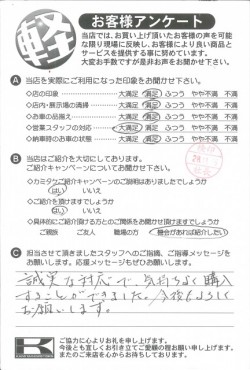 軽
お客様アンケート
当店では、お買い上げ頂いたお客様の声を可能
な限り現場に反映し、お客様により良い商品と
サービスを提供する事に努めています。
大変お手数ですが是非お声をお聞かせ下さい。
A 当店を実際にご利用になった印象をお聞かせ下さい。
◇店の印象 大満足 満足 ふつう やや不満 不満
◇店内・展示場の清掃 大満足 満足 ふつう やや不満 不満
◇お車の品揃え 大満足 満足 ふつう やや不満 不満
◇営業スタッフの対応 大満足 満足 ふつう やや不満 不満
◇納車時のお車の状態 大満足 満足 ふつう やや不満 不満
B 当店はご紹介を大切にしております。
ご紹介キャンペーンについてお聞かせ下さい。
◇カミタケご紹介キャンペーンのご説明はありましたでしょうか
はい いいえ
◇ご紹介を頂けますでしょうか
はい いいえ
◇具体的にご紹介頂ける方とのご関係をお聞かせ頂けますでしょうか
ご親族 ご友人 職場の方 機会があれば紹介したい
C 担当させて頂きましたスタッフへのご指摘、ご指導メッセージを
お願いします。応援メッセージもぜひお願いします。
誠実な対応で、気持ちよく購入
することができました。今後もよろしく
お願いします。
K
ご協力に心よりお礼を申し上げます。
今後とも宜しくお引き立てご愛顧の程お願い申し上げます。
またのご来店を心からお待ちしております。